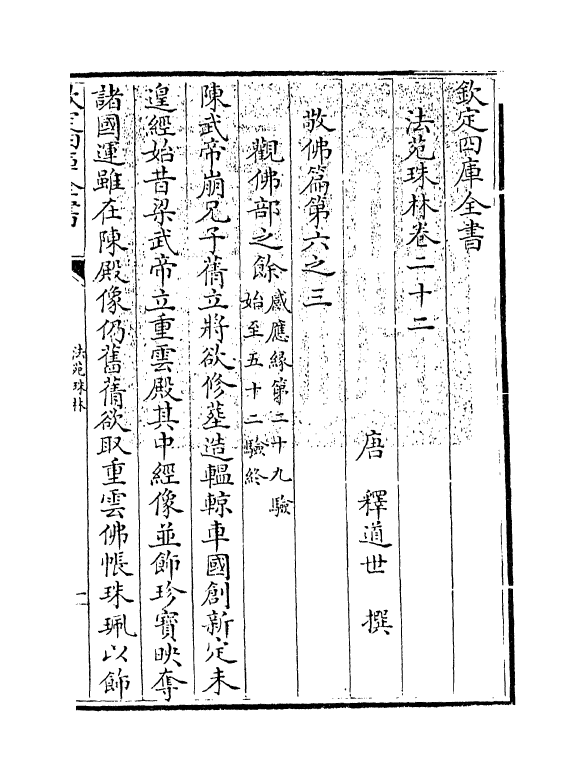 欽定四庫全書
法苑珠林卷二十二
唐 釋道世 撰
敬佛篇第六之三
觀佛部之餘感應緣第二十九驗
始至五十二驗終
陳武帝崩兄子蒨立將欲修葬造轀輬車國創新定未
遑經始昔梁武帝立重雲殿其中經像並飾珍寶映奪
諸國運雖在陳殿像仍舊蒨欲取重雲佛帳珠珮以飾
欽定四庫全書
法苑珠林